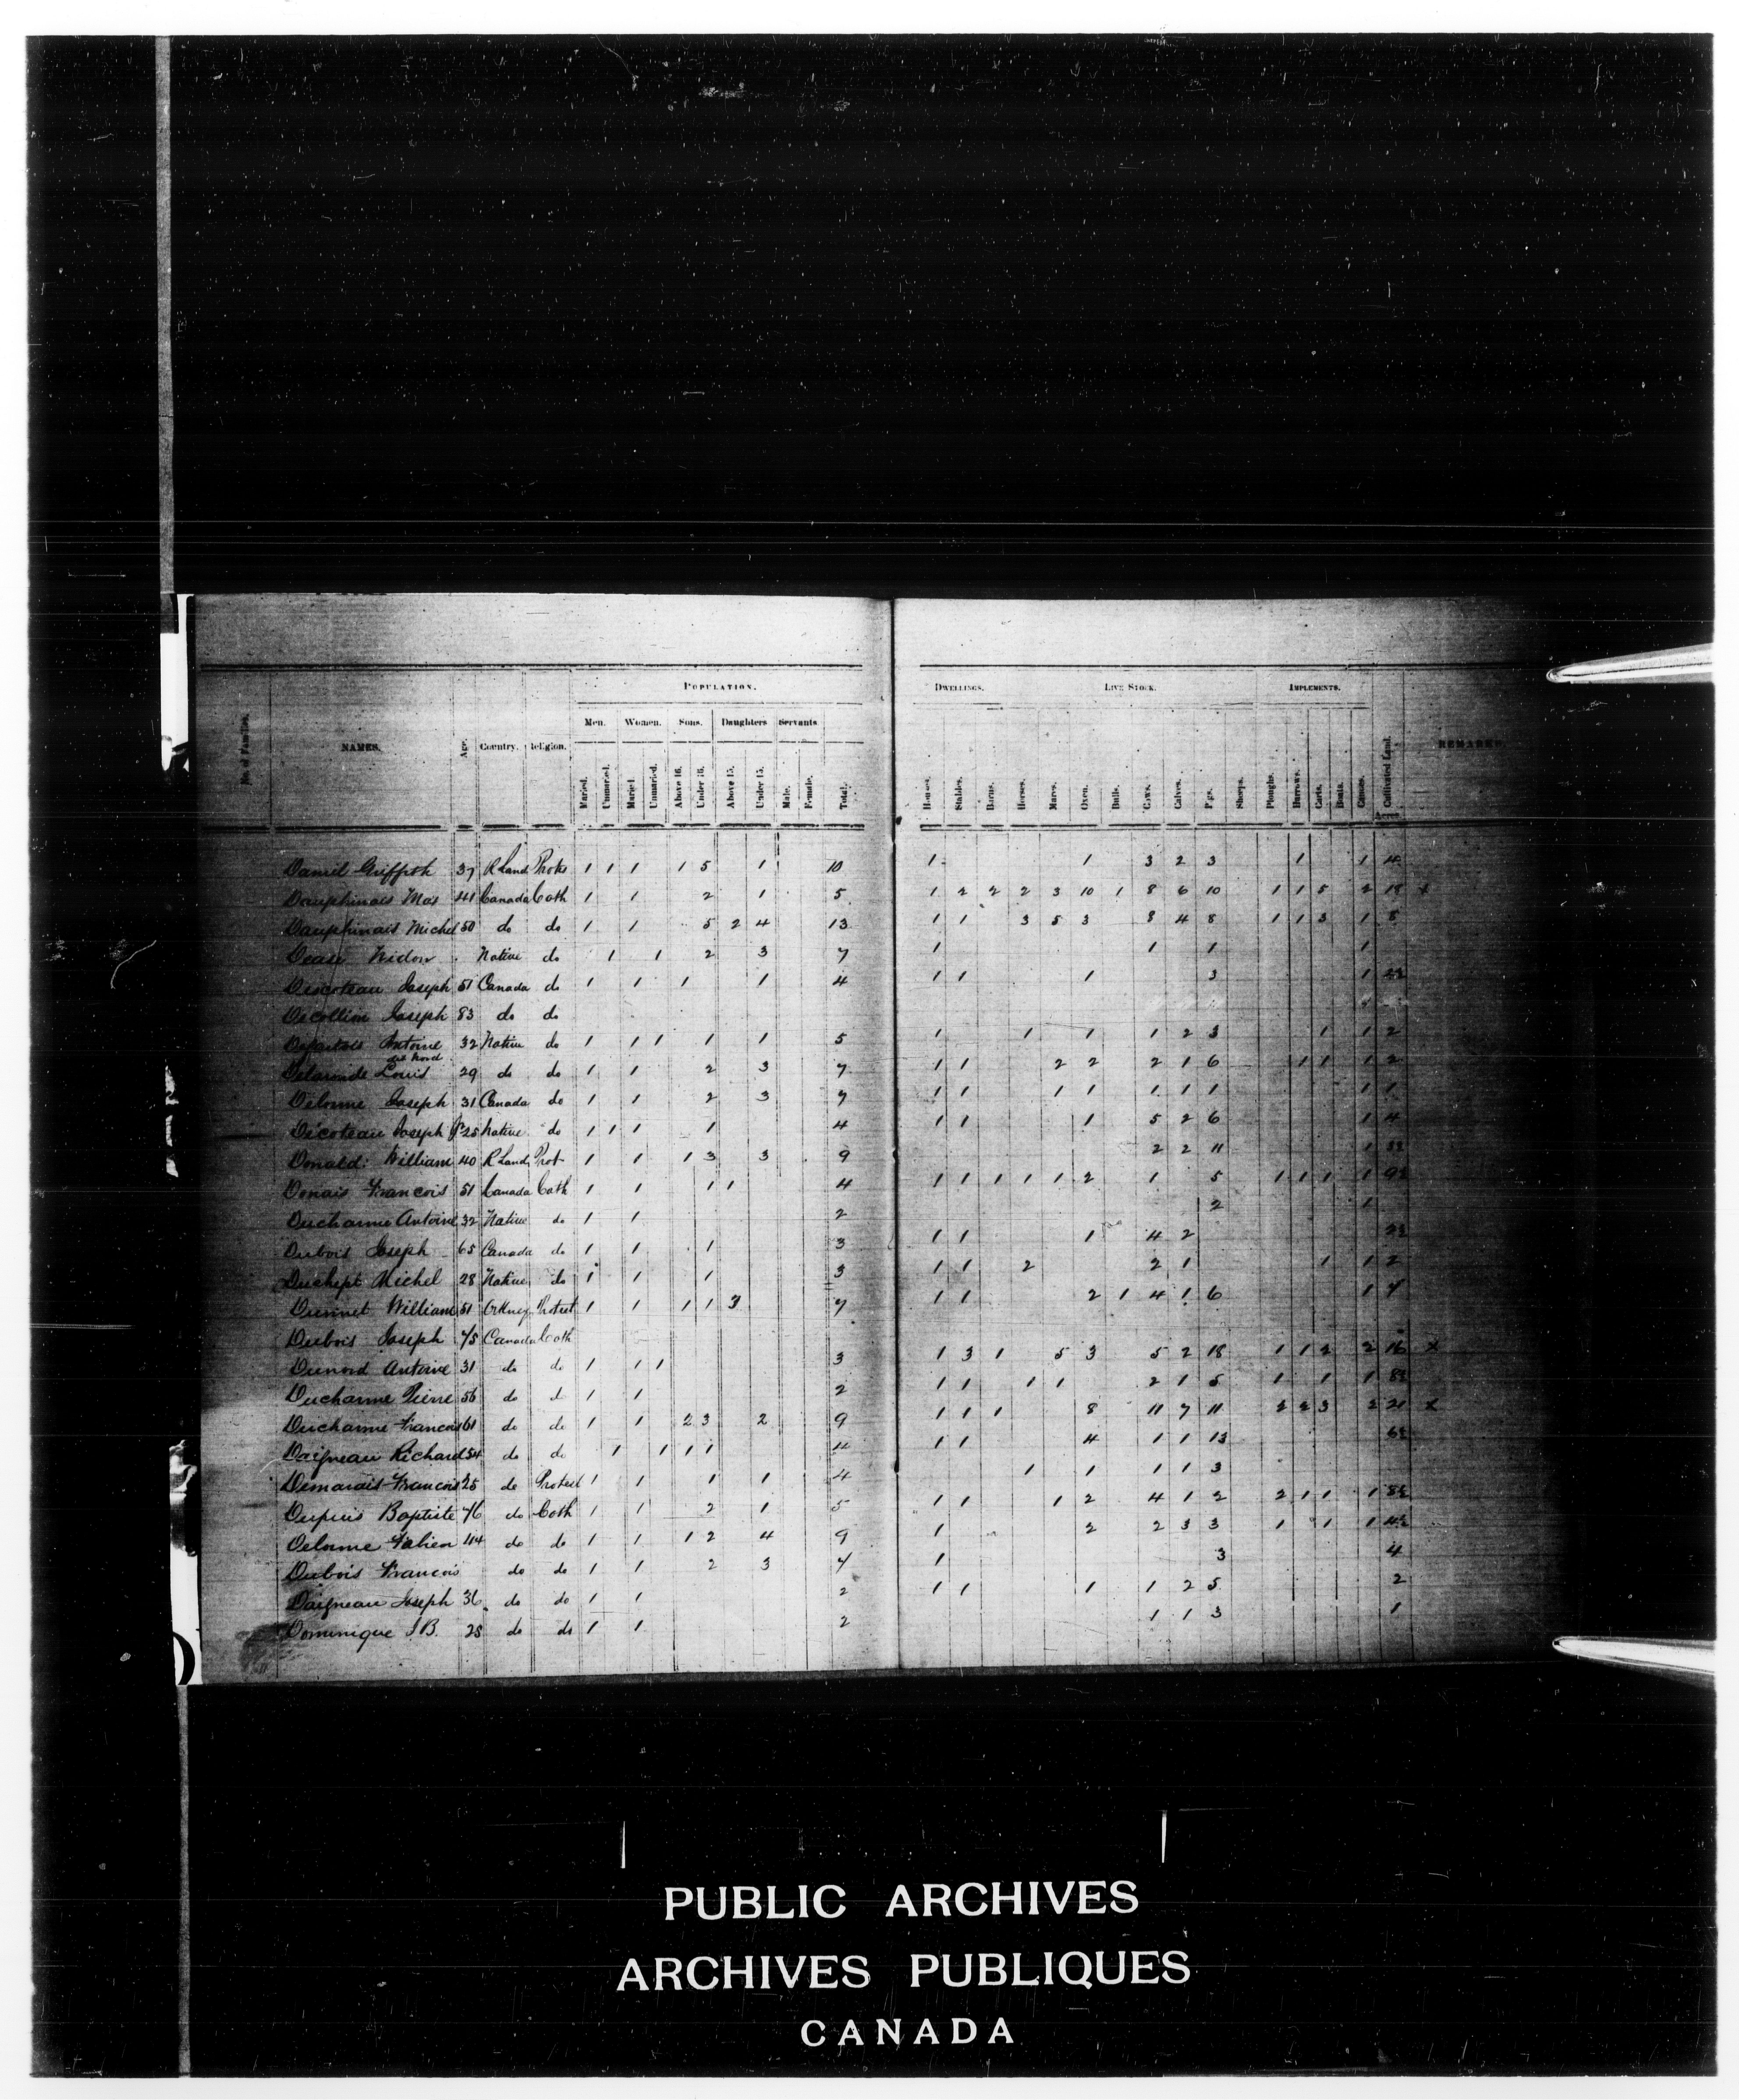 POPULATION. DWELLINGS. LIVE STOCK. IMPLEMENTS.
Men. Women. Sons. Daughters Servants
No. of Families. NAMES. Age. Country. Religion. Maried. Unmaried. Maried. Unmaried. Above 16. Under 16. Above 15. Under 15. Male. Female. Total. Houses. Stables. Barns. Horses. Mares. Oxen. Bulls. Cows. Calves. Pigs. Sheeps. Ploughs. Harrows. Carts. Boats. Canoes. Cultivated Land. Acres REMARKS
Daniel Griffith 37 R Land Protes 1 1 1 1 5 1 10 1 1 3 2 3 1 1 4
Dauphinais Mas 41 Canada Cath 1 1 2 1 5 1 2 2 2 3 10 1 8 6 10 1 1 5 2 18 x
Dauphinais Michel 50 do do 1 1 5 2 4 13 1 1 3 5 3 8 4 8 1 1 3 1 8
Dease Widow Native do 1 1 2 3 7 1 1 1 1
Descoteau Joseph 51 Canada do 1 1 1 1 4 1 1 1 3 1
Joseph 83 do do
Antoine 32 Native do 1 1 1 1 1 5 1 1 1 1 2 3 1 1 2
Delaronde Louis 29 do do 1 1 2 3 7 1 1 2 2 2 1 6 1 1 1 2
Delorme Joseph 31 Canada do 1 1 2 3 7 1 1 1 1 1 1 1 1 1
Décoteau Joseph Jr 25 Native do 1 1 1 1 4 1 1 1 5 2 6 1 4
Donald: William 40 R Land Prot 1 1 1 3 3 9 2 2 11 1
Donais Francois 51 Canada Cath 1 1 1 1 4 1 1 1 1 1 2 1 5 1 1 1 1
Ducharme Antoine 32 Native do 1 1 2 2 1
Dubois Joseph 65 Canada do 1 1 1 3 1 1 1 4 2
Michel 28 Native do 1 1 1 3 1 1 2 2 1 1 1 2
Dunnet William 51 Orkney Protest 1 1 1 1 3 7 1 1 2 1 4 1 6 1 7
Dubois Joseph 75 Canada Cath
Dunord Antoine 31 do do 1 1 1 3 1 3 1 5 3 5 2 18 1 1 2 2 16 x
Ducharme Pierre 56 do d 1 1 2 1 1 1 1 2 1 5 1 1 1
Ducharme Francois 61 do do 1 1 2 3 2 9 1 1 1 8 11 7 11 2 2 3 2 21 x
Daigneau Richard 54 do do 1 1 1 1 4 1 1 4 1 1 13
Demarais Francois 25 do Protest 1 1 1 1 4 1 1 1 1 3
Dupuis Baptiste 46 do Cath 1 1 2 1 5 1 1 1 2 4 1 2 2 1 1 1
Delorme Fabien 44 do do 1 1 1 2 4 9 1 2 2 3 3 1 1 1
Dubois Francois do do 1 1 2 3 7 1 3 4
Daigneau Joseph 36 do do 1 1 2 1 1 1 1 2 5 2
Dominique J B. 25 do do 1 1 2 1 1 3 1
PUBLIC ARCHIVES
ARCHIVES PUBLIQUES
CANADA